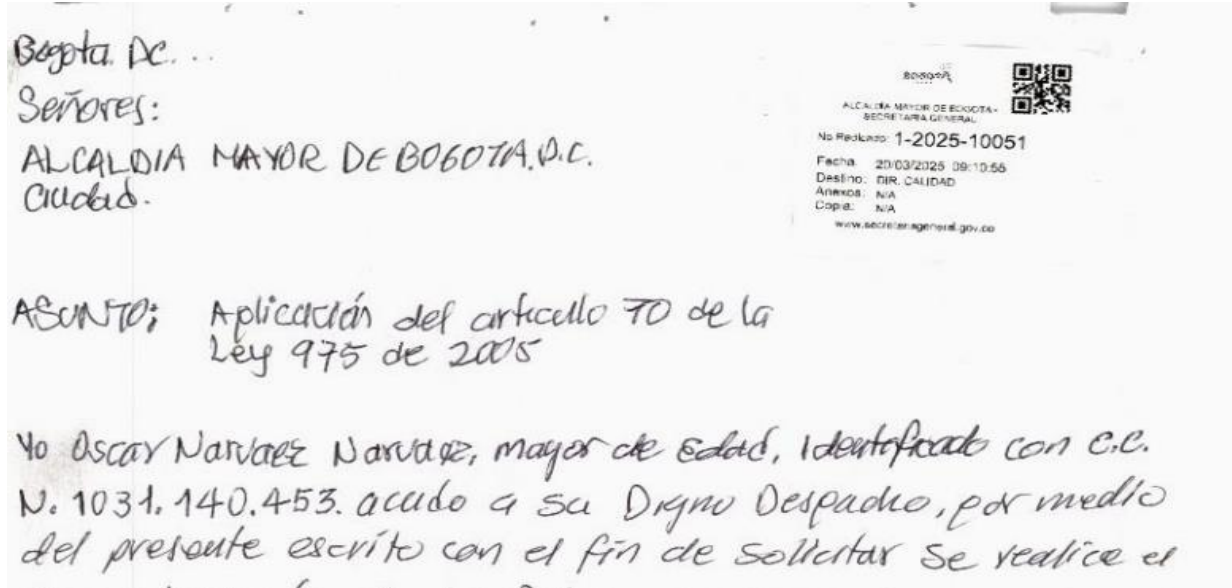 Bogota DC...
Señores:
ALCALDIA MAYOR DE BOGOTA.D.C.
Ciudad.
ALCALDÍA MAYOR DE BOGOTA -
SECRETARIA GENERAL
No Radicado: 1-2025-10051
Fecha: 20/03/2025 09:10:55
Destino: DIR. CALIDAD
Anexos: N/A
Copia: N/A
www.secretariageneral.gov.co
ASUNTO: Aplicación del articulo 70 de la
Ley 975 de 2005
Yo Oscar Narvaez Narvaez, mayor de edad, identificado con C.C.
N. 1031.140.453. acudo a su Digno Despacho, por medio
del presente escrito con el fin de solicitar se realice el